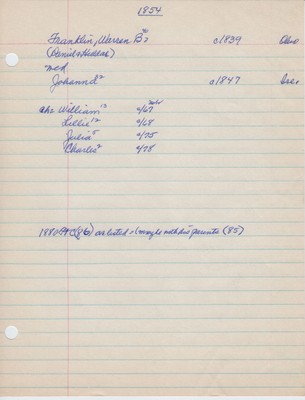 1854
Franklin, Warren B c1839 Ohio
(Daniel & Huldah)
med
Johanna c1847 Ire
chs William 13 c/67
Lillie 12 c/68
Julia 5 c/75
Charles 2 c/78
1880 (86) as listed (maybe with his parents (85)